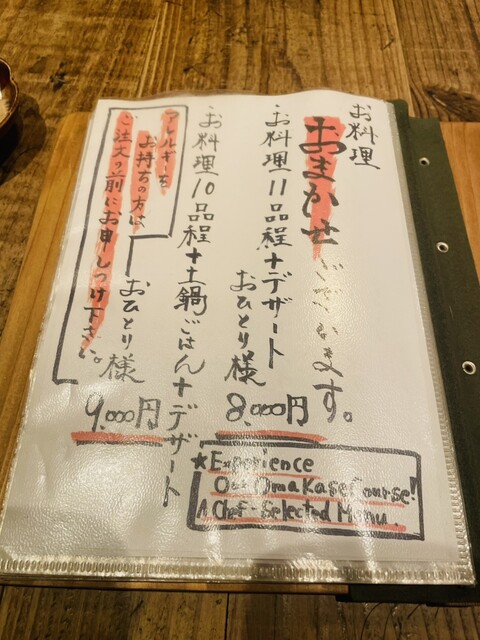 お料理
おまかせございます。
・お料理11品程+デザート
おひとり様
8,000円
・お料理10品程+土鍋ごはん+デザート
おひとり様
9,000円
アレルギーを
お持ちの方は
ご注文の前にお申しつけ下さい。
★Experience
Our Omakase Course!
A Chef-Selected Menu.